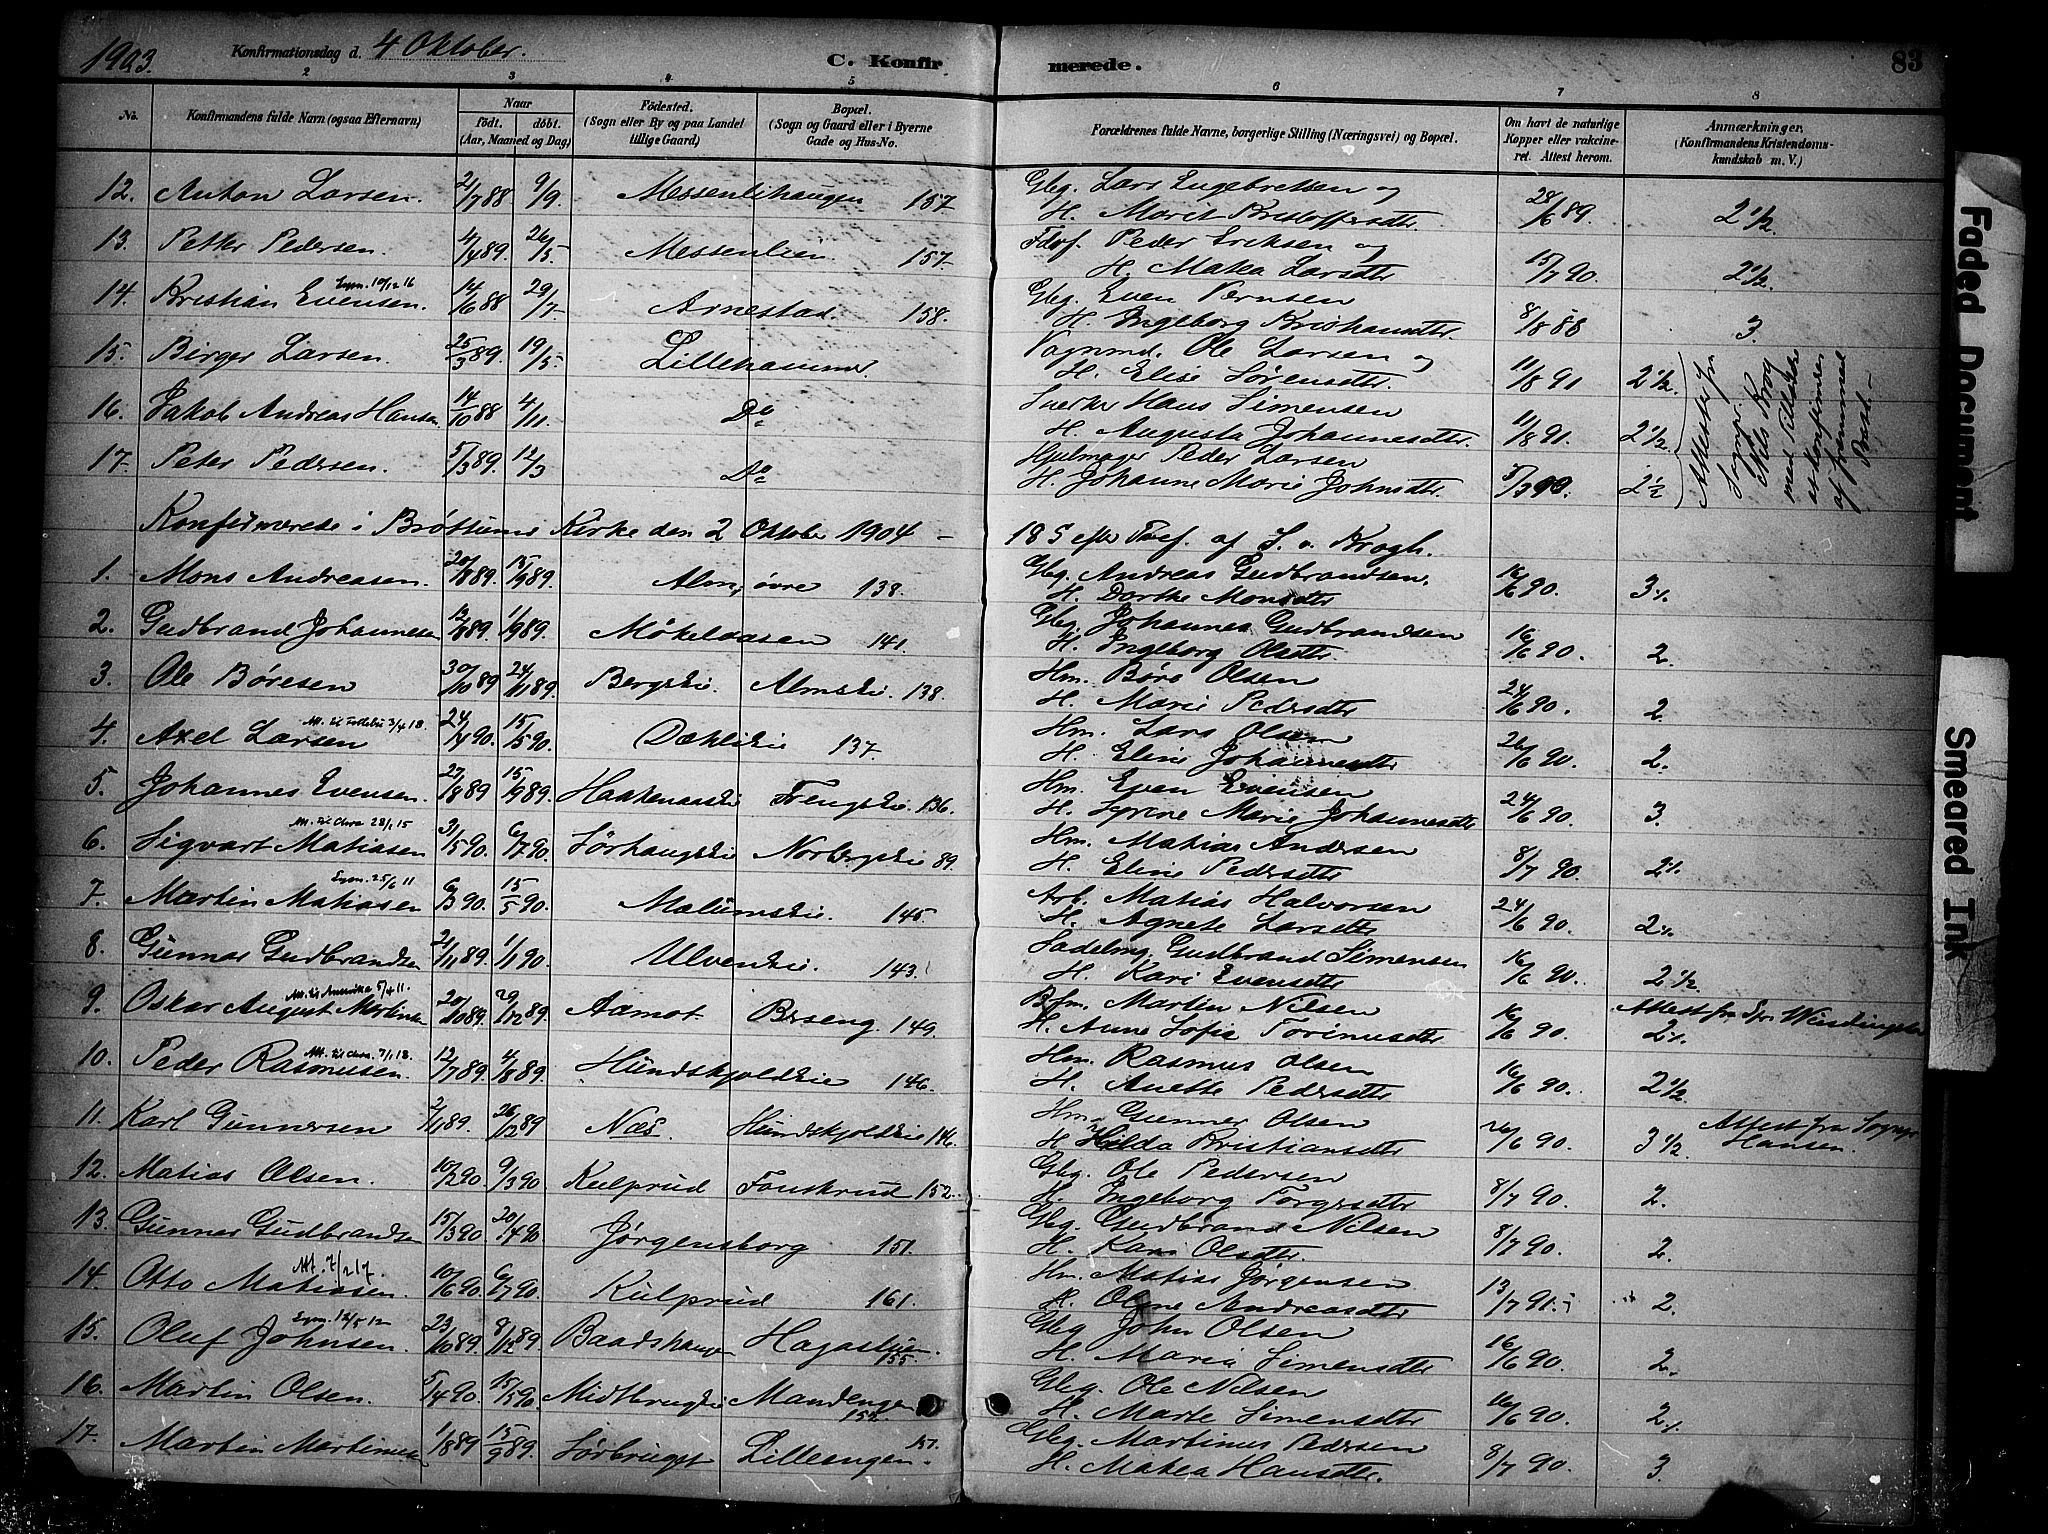 1903. Konfirmationsdag d. 4 Oktober. C. Konfirmerede. 83
2 3 4 5 6 7 8
No. Konfirmandens fulde Navn (ogsaa Efternavn) Naar født. døbt. (Aar, Maaned og Dag) Fødested. (Sogn eller By og paa Landet tillige Gaard) Bopæl. (Sogn og Gaard eller i Byerne Gade og Hus-No. Forældrenes fulde Navne, borgerlige Stilling (Næringsvei) og Bopæl. Om havt de naturlige Kopper eller vakcineret. Attest herom. Anmærkninger. (Konfirmandens Kristendomskundskab m. V.)
12. Anton Larsen. 21/7 88 9/9 Messenlihaugen 157 Gbg. Lars Engebretsen og H. Marit Kristoffersdtr. 28/6 89. 2 1/2.
13. Petter Pedersen. 4/4 89. 26/5- Messenlien 157. Peder Eriksen og H. Mathea Larsdtr 15/7 90. 2 1/2.
14. Kristian Evensen. 14/6 88 29/7- Arnestad 158. Gbg. Even H. Ingeborg Kristiansdtr. 8/8 88 3.
15. Birger Larsen. 25/3 89. 19/5- Lillehammer. Vognmd. Ole Larsen og H. Elise Sørensdtr. 11/8 91 2 1/2.
16. Jakob Andreas Hansen 14/10 88 4/11. Do Hans Simensen H. Augusta Johannesdtr. 11/8 91. 2 1/2
17. Peter Pedersen. 5/3 89. 12/3 Do Hjulmager Peder Larsen H. Johanne Marie Johnsdtr. 5/3 90. 2 1/2
Attester fra Sognpr. Nils Krog med Tilladelse af fremmed Præst.
Konfirmerede i Brøttums Kirke den 2 Oktober 1904 - 18 S. efter Tref. af S. v. Krogh.
1. Mons Andreasen. 20/8 89. 15/9 89. Alm, øvre 138. Gbg. Andreas Gudbrandsen. H. Dorthe Monsdtr 16/6 90. 3.
2. Gudbrand Johannesen 12/8 89. 1/9 89. Møkelaasen 141. Gbg. Johannes Gudbrandsen H. Ingeborg Olsdtr. 16/6 90. 2.
3. Ole Børesen 30/10 89 24/11 89. Bergseie. Almseie. 138. Hm. Børe Olsen H. Marie Pedersdtr 24/6 90. 2.
4. Axel Larsen 24/4 90. 15/5 90. Dæhliseie 137. Hm. Lars Olsen H. Eline Johannesdtr 26/6 90. 2.
5. Johannes Evensen. 27/8 89 15/9 89. Frengseie 136. Hm. Even Evensen H. Syrene Marie Johannesdtr 24/6 90. 3.
6. Sigvart Matiasen 31/5 90. 6/7 90. Sørhaugseie Norbergseie 89. Hm. Matias Andersen H. Eline Pedersdtr 8/7 90. 2.
7. Martin Matiasen 6/3 90. 15/5 90. Malumseie. 145. Arb. Matias Halvorsen H. Agnete Larsdtr 24/6 90. 2.
8. Gunnar Gudbrandsen 21/11 89. 1/1 90. Ulvenseie. 143. Sadelmg. Gudbrand Simensen H. Kari Evensdtr. 16/6 90. 2 1/2.
9. Oskar August Martinsen Att. til Amerika 5/4 11. 20/10 89. 29/12 89 Aamot. Berseng. 149. Bfm. Martin Nilsen H. Anne Sofie Torinusdtr 16/6 90. Attest fra Spr. 2.
10. Peder Rasmusen. 12/7 89. 4/8 89. Hundskjoldseie 146. Hm. Rasmus Olsen H. Anette Pedersdtr. 16/6 90. 2 1/2.
11. Karl Gunnersen 2/11 89. 26/12 89 Næs. Hundskjoldseie 146. Hm. Gunner Olsen H. Hilda Kristiansdtr 26/6 90. 3 1/2 Attest fra Sognepr. Hansen.
12. Matias Olsen. 10/2 90 9/3 90 Kulprud Fonskrud 152. Gbg. Ole Pedersen H. Ingeborg Torgersdtr 8/7 90. 2.
13. Gunnar Gudbrandsen 15/3 90 20/4 90. Jørgensborg 151. Gbg. Gudbrand Nilsen H. Kari Olsdtr. 8/7 90. 2.
14. Otto Matiasen. 10/6 90 6/7 90. Kulprud 161. Hm. Matias Jørgensen H. Oline Andreasdtr 13/7 91. 2.
15. Oluf Johnsen. 23/10 89. 8/12 89 Baadshaugen Hagastuen. 155. Gbg. John Olsen H. Maria Simensdtr 16/6 90. 2.
16. Martin Olsen. 5/4 90. 15/5 90. Midtbrugseie Mandengen 152. Gbg. Ole Nilsen H. Marte Simensdtr 16/6 90. 2.
17. Martin Martinusen 1/8 89 15/9 89. Sørbruget Lilleengen. 151. Gbg. Martinus Pedersen H. Mathea Hansdtr. 8/7 90. 3.
Faded Document
Smeared Ink